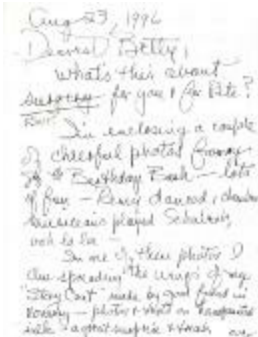 Aug 23, 1996
Dearest Betty,
What's this about
surgery for you & for Pete?
I'm enclosing a couple
of cheerful photos from
my Birthday Bash — lots
of fun — Remy danced, chamber
musicians played Schubert,
ooh la la —
In one of these photos I
am spreading the wings of my
"Story Coat" made by good friend in
— photos & text on handpainted
silk — a great surprise &